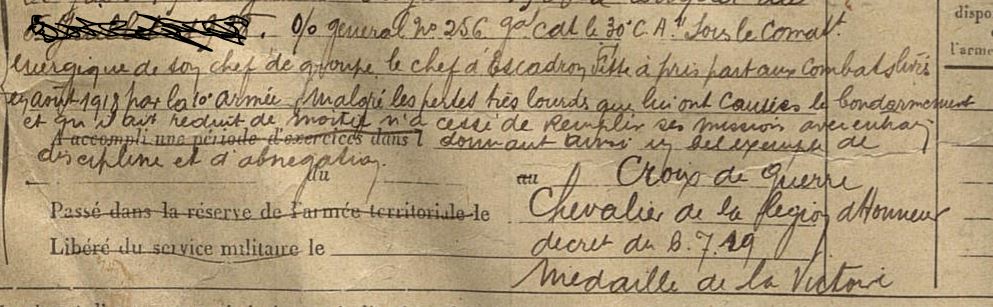 O/o general No. 256 gal cdt le 30e C.A. "Sous le Comat
energique de son chef de groupe, le chef d'Escadron à pris part aux combats livrés
en Août 1918 par la 10e armée. Malgré les pertes très lourdes que lui ont causées le bombarmement
et qui l'ait réduit de moitié n'a cessé de remplir ses missions avec entrain
A accompli une période d'exercices dans l donnant ainsi un bel exemple de
discipline et d'abnégation.
du au Croix de Guerre
Passé dans la réserve de l'armée territoriale le Chevalier de la Légion d'Honneur
Libéré du service militaire le decret du 6.7.19
Medaille de la Victoire
dispo
l'arme